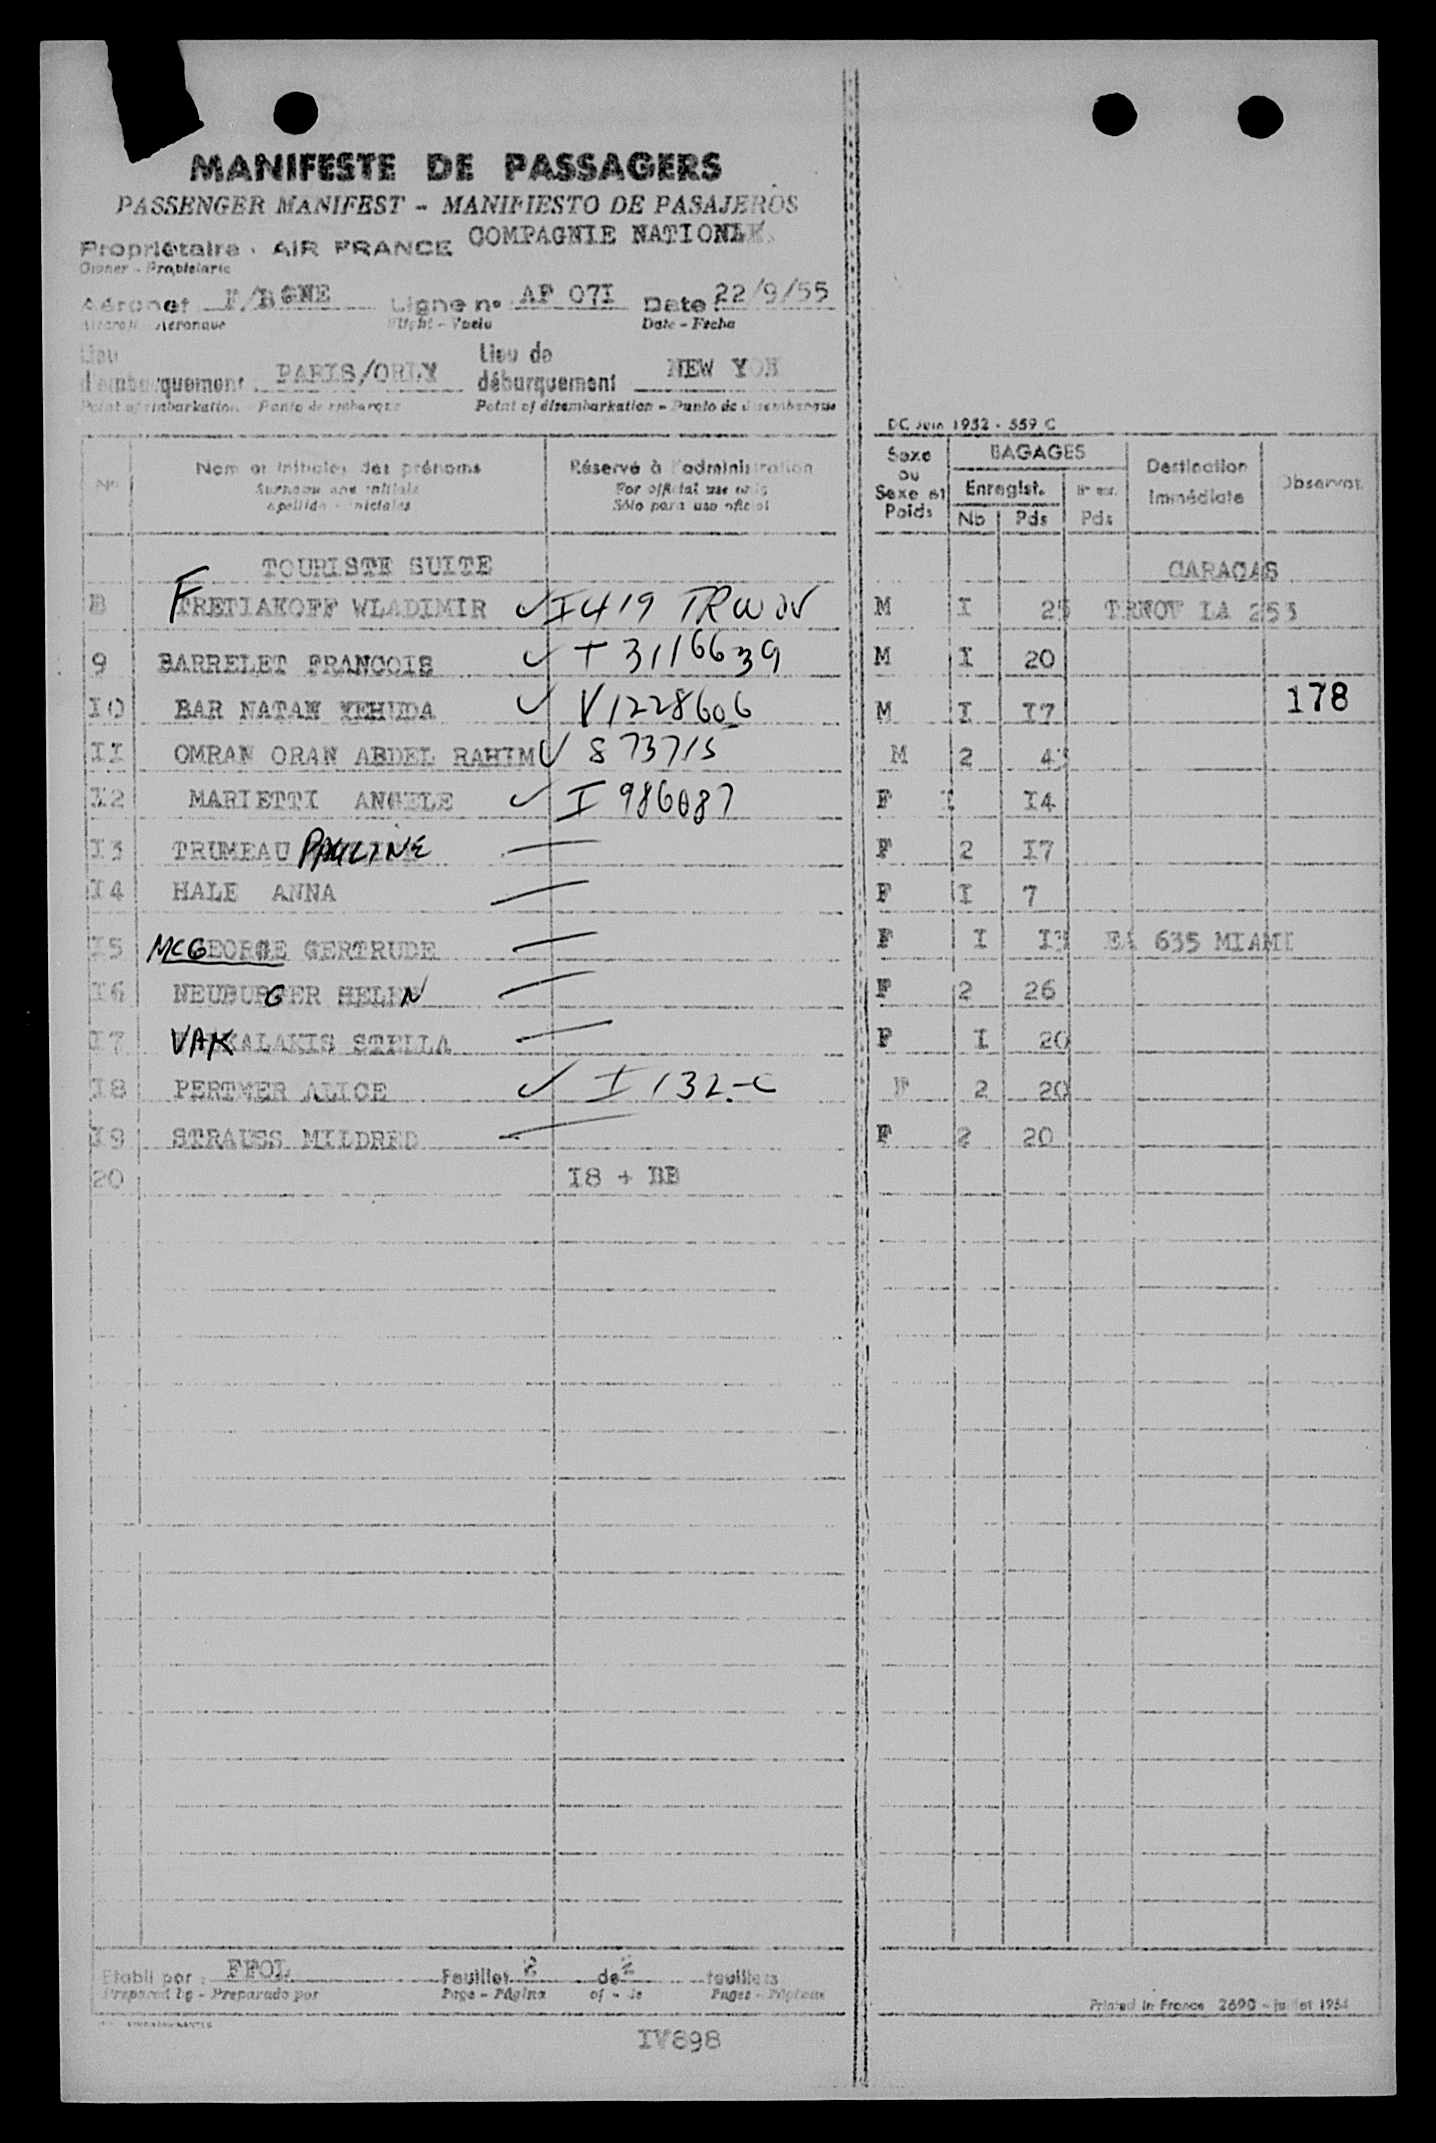 MANIFESTE DE PASSAGERS
PASSENGER MANIFEST - MANIFIESTO DE PASAJEROS
Propriétaire : AIR FRANCE COMPAGNIE NATIONLE.
Owner - Propietario
Aéronef F/BGNE Ligne n° AF 07I Date : 22/9/55
Aircraft - Aeronave Flight - Vuelo Date - Fecha
Lieu d'embarquement PARIS/ORLY Lieu de débarquement NEW YOR
Point of embarkation - Punto de embarque Point of disembarkation - Punto de desembarque
DC Juin 1952 - 559 C
N° Nom et initiales des prénoms Réservé à l'administration Sexe ou Sexe et Poids BAGAGES Destination Immédiate Observat.
Surname and initials For official use only Enregist.
apellido - iniciales Sólo para uso oficial Nb Pds Pds
TOURISTE SUITE CARACAS
8 FTRETIAKOFF WLADIMIR ✓ I 419 M I 25 LA 253
9 BARRELET FRANCOIS ✓ T 3116639 M I 20
I0 BAR NATAN YEHUDA ✓ V1228606 M I I7 178
II OMRAN ORAN ABDEL RAHIM ✓ 873715 M 2 43
I2 MARIETTI ANGELE ✓ I 986087 F I I4
I3 TRUMEAU PAULINE — F 2 I7
I4 HALE ANNA — F I 7
I5 McGEORGE GERTRUDE — F I I3 EA 635 MIAMI
I6 NEUBURGER HELEN — F 2 26
I7 VAKALAKIS STELLA — F I 20
I8 PERTMER ALICE ✓ I 132-C F 2 20
I9 STRAUSS MILDRED — F 2 20
20 I8 + BB
Etabli par : FFOL Feuillet 2 de 2 feuillets
Prepared by - Preparado por Page - Página of - de Pages - Páginas
Printed in France 2690 - juillet 1954
IV898